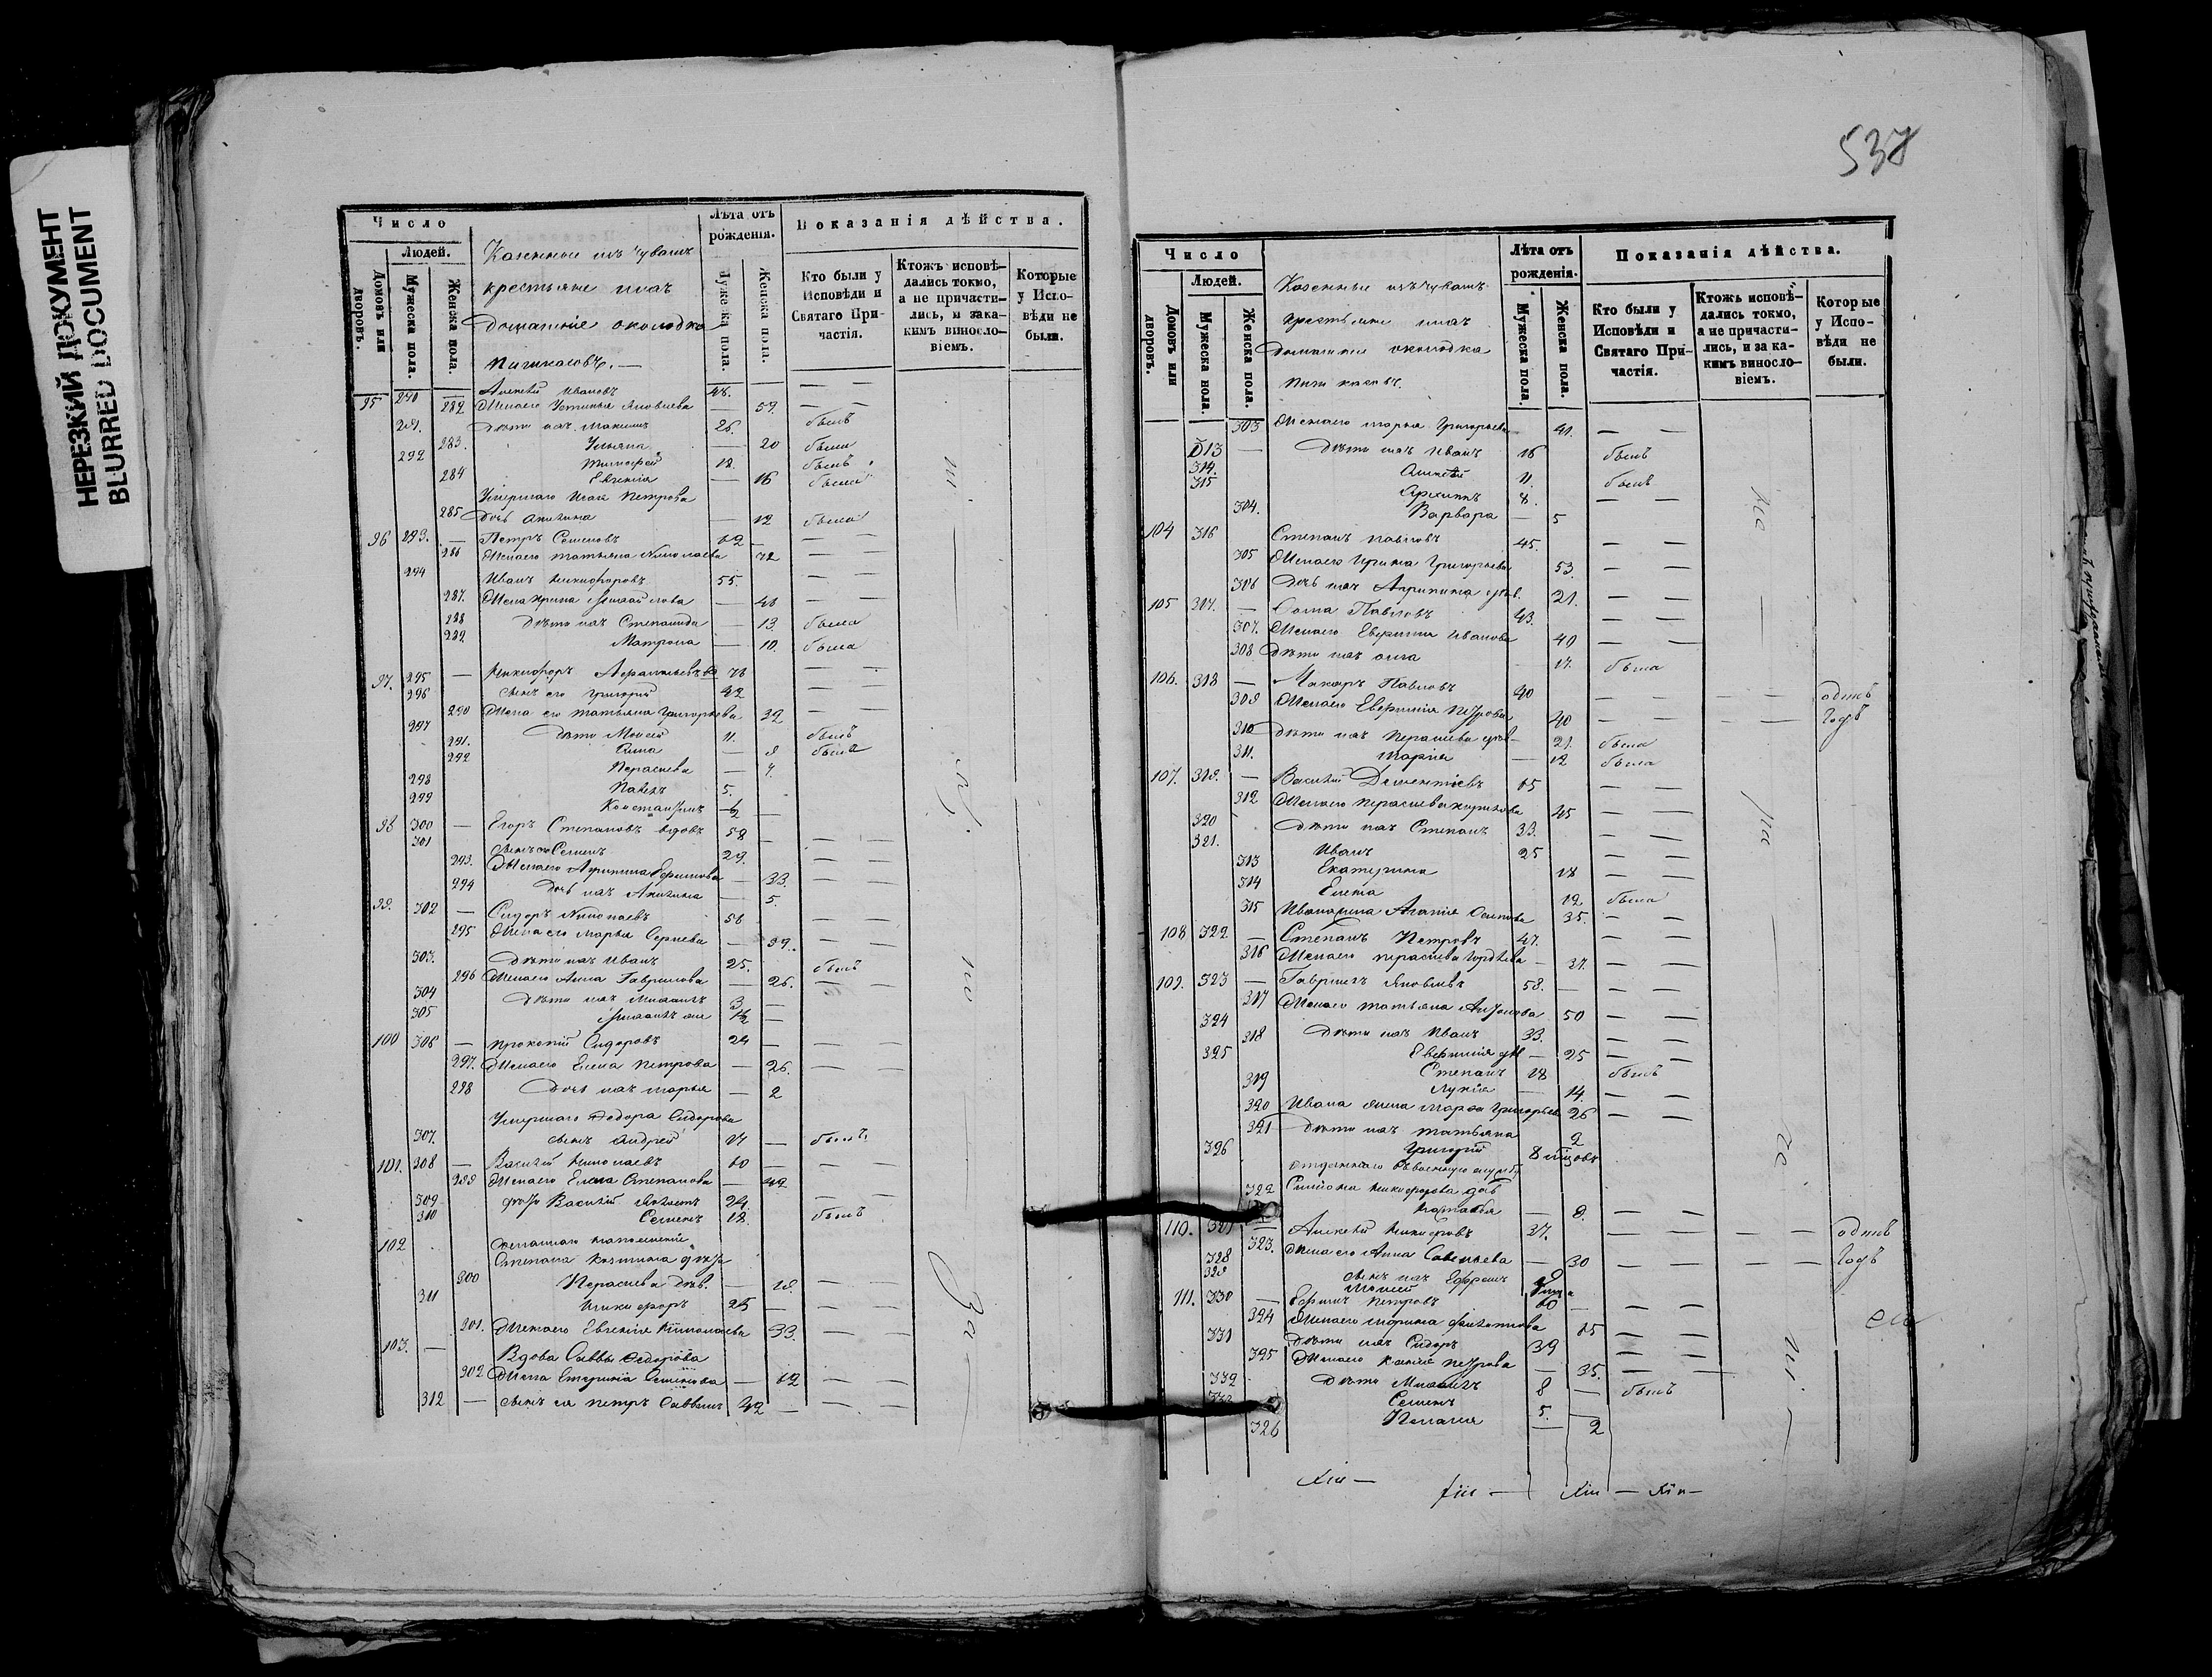 НЕРЕЗКИЙ ДОКУМЕНТ
BLURRED DOCUMENT
Число
Людей.
Домовъ или дворовъ.
Мужеска пола.
Женска пола.
Казенные изъ чувашъ
крестьяне
Домашніе околодка
Лѣта отъ рожденія.
Мужеска пола.
Женска пола.
Показанія дѣйства.
Кто были у Исповѣди и Святаго Причастія.
Ктожъ исповѣдались токмо, а не причастились, и закакимъ винословіемъ.
Которые у Исповѣди не были.
95 290 — Алексѣй Ивановъ 48. — —
282. Жена его Устинья Яковлева — 59. — —
291. Дѣти ихъ Максимъ 26. былъ
283. Ульяна — 20 была
292 Тимофей 18. былъ
284 Евгенія — 16 была
Умершаго Петрова
285 Дочь Акилина — 12 была
96 293. — Петръ Семеновъ 62 — — —
286 Жена его Татьяна Николаева 72 — —
294 Иванъ Никифоровъ 55. — —
287. Жена Ирина Михайлова — 46 — —
288 Дѣти ихъ Степанида — 13. была
289. Матрона — 10. была
97. 295 — Никифоръ 76 — —
296 Сынъ его Григорій 42 — —
290 Жена его Татьяна Григорьева 32 — —
297 Дѣти Моисей 11. былъ
291. Анна — 8 была
292 Параскева — 7.
298 Павелъ 5.
299 Константинъ 1/2 —
98 300 — Егоръ Степановъ вдовъ 58 — — —
301 Сынъ его Семенъ 29. — —
293. Жена его Агрипина — 33. — —
294 Дочь ихъ Акилина — 5.
99. 302 — Сидоръ Николаевъ 56 — —
295 Жена его Марья Сергеева — 39. — —
303. Дѣти ихъ Иванъ 25. былъ
296 Жена его Анна Гаврилова — 26. — —
304 Дѣти ихъ Михаилъ 3 —
305 Михаилъ 1/2 —
100 306 — Прокопій Сидоровъ 24 — — —
297. Жена его Елена Петрова — 26. — —
298 Дочь ихъ Марья — 2
Умершаго Федора Сидорова
307. сынъ Андрей 14 — былъ.
101. 308 — Василій Николаевъ 60 — — —
299 Жена его Елена Степанова — 42
309 Василій 24. — —
310 Семенъ 18. былъ
102
Степана Козмина
300 Параскева дѣв. — 18. — —
311 Никифоръ 25 — — —
301. Жена его Евгенія Николаева 33. — —
103. — Вдова Саввы Федорова
302 Жена Семенова — 62 — —
312 — сынъ ея Петръ Саввинъ 42 — — —
537
Число
Людей.
Домовъ или дворовъ.
Мужеска пола.
Женска пола.
Казенные изъ чувашъ
крестьяне
Домашніе околодка
Лѣта отъ рожденія.
Мужеска пола.
Женска пола.
Показанія дѣйства.
Кто были у Исповѣди и Святаго Причастія.
Ктожъ исповѣдались токмо, а не причастились, и за какимъ винословіемъ.
Которые у Исповѣди не были.
303 Жена его Марья Григорьева 41. — —
313 — Дѣти ихъ Иванъ 16 былъ
314. Алексѣй 11. былъ
315 Архипъ 8. — —
304. Варвара — 5
104 316 Степанъ Павловъ 45. — —
305 Жена его Ирина Григорьева 53. — —
306 Дочь ихъ Агрипина дѣв. 21. — —
105 317. — Фома Павловъ 43. — —
307. Жена его Евфимія Иванова 40 — —
308 Дѣти ихъ 17. была
106. 318 — Макаръ Павловъ 40 — — одинъ
309 Жена его Евфимія Петрова 40 — — Годъ
310 Дѣти ихъ Параскева дѣв — 21. была
311. Марія — 12 была
107. 319. — Василій Дементіевъ 65 — —
312 Жена его Параскева 65 — —
320 Дѣти ихъ Степанъ 33. — —
321. Иванъ 25 — —
313 Екатерина 18 — —
314 Елена 12 была
315 Ивана жена Агафія Осипова 35. — —
108 322 — Степанъ Петровъ 47. — —
316 Жена его Параскева Гордѣева — 37. — —
109. 323 — Гаврилъ Яковлевъ 58. — — —
317 Жена его Татьяна Антонова 50 — —
324 Дѣти ихъ Иванъ 33. — —
318 Евфимія — 25 — —
325 Степанъ 18 былъ
319 Лукія — 14. — —
320 Ивана жена Марфа Григорьева 26 — —
321 Дѣти ихъ Татьяна 2
326 Григорій 8 мѣсцовъ
отданнаго въ военную службу
322 Никифорова
— 8. — —
110. 327 — Алексѣй Никифоровъ 37. — — — — одинъ
323. Жена его Анна Савельева — 30 — — — — Годъ
328 сынъ ихъ Ефремъ 9
329 Моисей
111. 330 — Ефимъ Петровъ 60 — — —
324 Жена его Марина 65 — —
331 Дѣти ихъ Сидоръ 39 — —
325 Жена его Ксенія Петрова — 35. — —
332 Дѣти Михаилъ 8 — былъ
Семенъ 5. —
326 Пелагія — 2